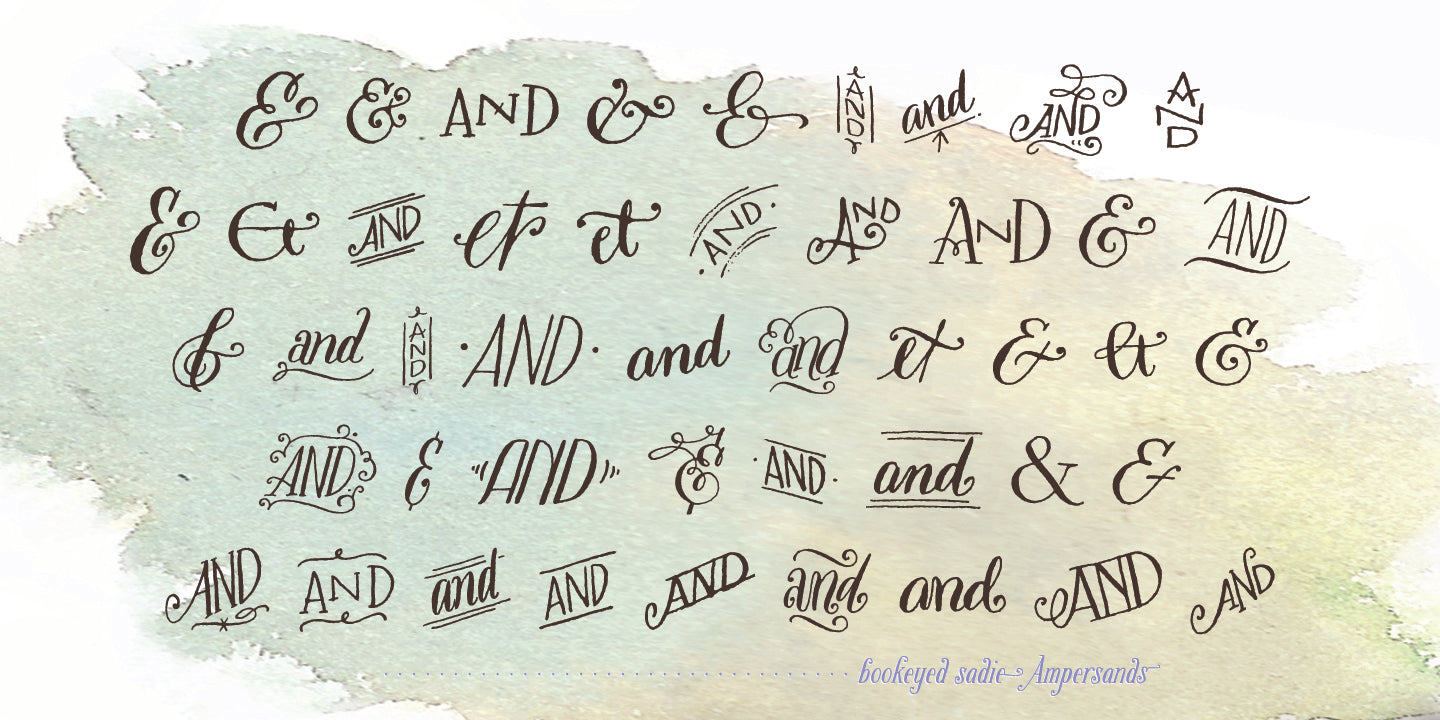 & & AND & & AND and AND AND
& & AND et et AND AND AND & AND
& and AND ·AND· and and et & & &
AND & "AND" & ·AND· and & &
AND AND and AND AND and and AND AND
bookeyed sadie Ampersands